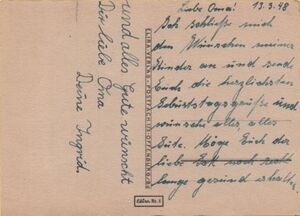 Liebe Oma! 13.3.48
Ich schließe mich
den Wünschen meiner
Kinder an und send
Euch die herzlichsten
Geburtstagsgrüße und
wünsche alles alles
Gute. Möge Euch der
liebe Gott noch recht
lange gesund erhalten
und alles Gute wünscht
Dir liebe Oma
Deine Ingrid.
ELIBA-VERLAG · POSTFACH 170 · OFFENBURG/BD